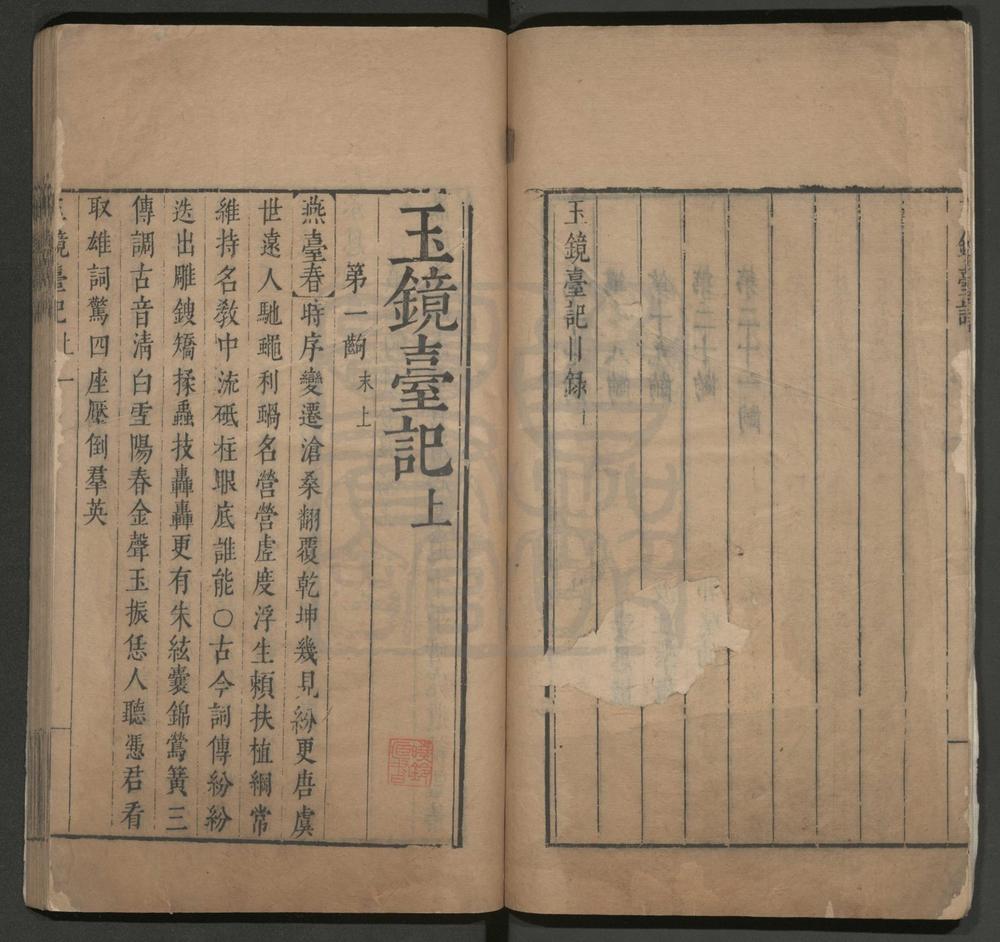 玉鏡臺記目錄
玉鏡臺記上
第一齣 末上
【燕臺春】時序變遷滄桑翻覆乾坤幾見紛更唐虞
世遠人馳蠅利蝸名營營虛度浮生賴扶植綱常
維持名教中流砥柱眼底誰能○古今詞傳紛紛
迭出雕鎪矯揉蟲技轟轟更有朱絃囊錦鶯簧三
傳調古音清白雪陽春金聲玉振恁人聽憑君看
取雄詞驚四座壓倒羣英
玉鏡臺記上 一